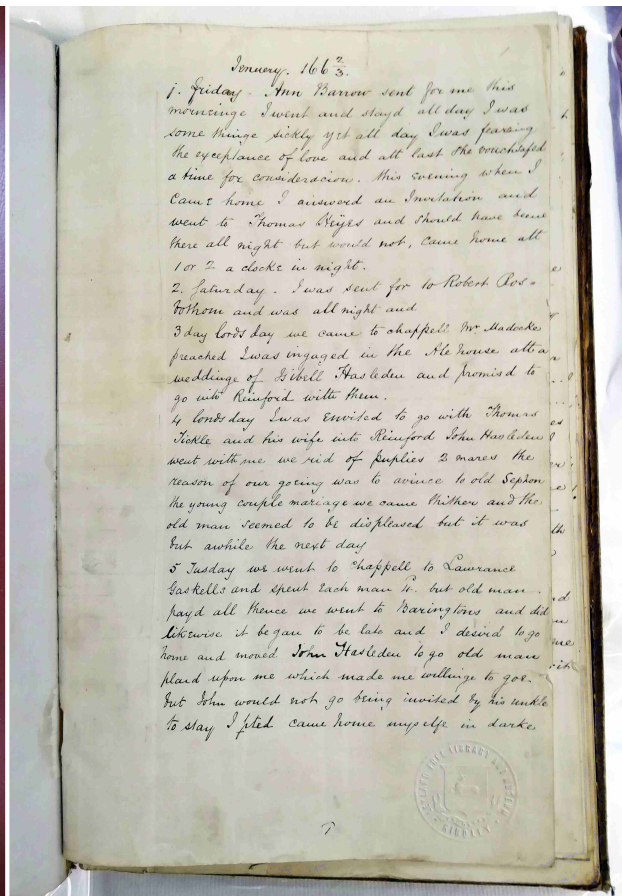 Jenuery. 166 2/3.
1. Friday - Ann Barrow sent for me this
morninge I went and stayd all day I was
some thinge sickly yet all day I was fearing
the exceptance of love and att last she vouchsafed
a time for consideracion. this evening when I
came home I answered an Invitation and
went to Thomas Heyes and should have beene
there all night but would not, came home att
1 or 2 a clocke in night.
2. Saturday. I was sent for to Robert Ros-
bothom and was all night and
3 day lords day we came to chappell Mr Madocke
preached I was ingaged in the Ale house att a
weddinge of Gibell Hasleden and promisd to
go into Reinford with them.
4 lordsday I was envited to go with Thomas
Tickle and his wife into Reinford John Hasleden
went with me we rid of puplies 2 mares the
reason of our goeing was to avince to old Sephon
the young couple mariage we came thither and the
old man seemed to be displeased but it was
but awhile the next day
5 Tusday we went to chappell to Lawrance
Gaskells and spent Each man 4. but old man
payd all thence we went to Baringtons and did
likewise it began to be late and I desird to go
home and moved John Hasleden to go old man
plaid upon me which made me willinge to goe.
but John would not go being invited by his unkle
to stay I pted came home myselfe in darke